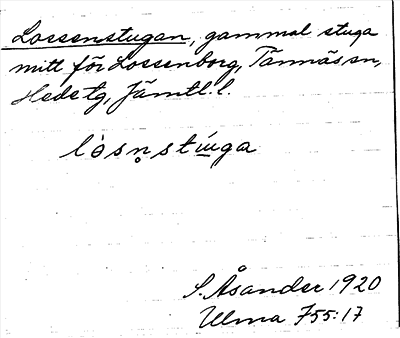 Lossenstugan, gammal stuga
mitt för Lossenborg, Tännäs sn,
Hede tg, Jämtl. l.
lòsn̥stu̱ga
S. Åsander 1920
Ulma 755:17